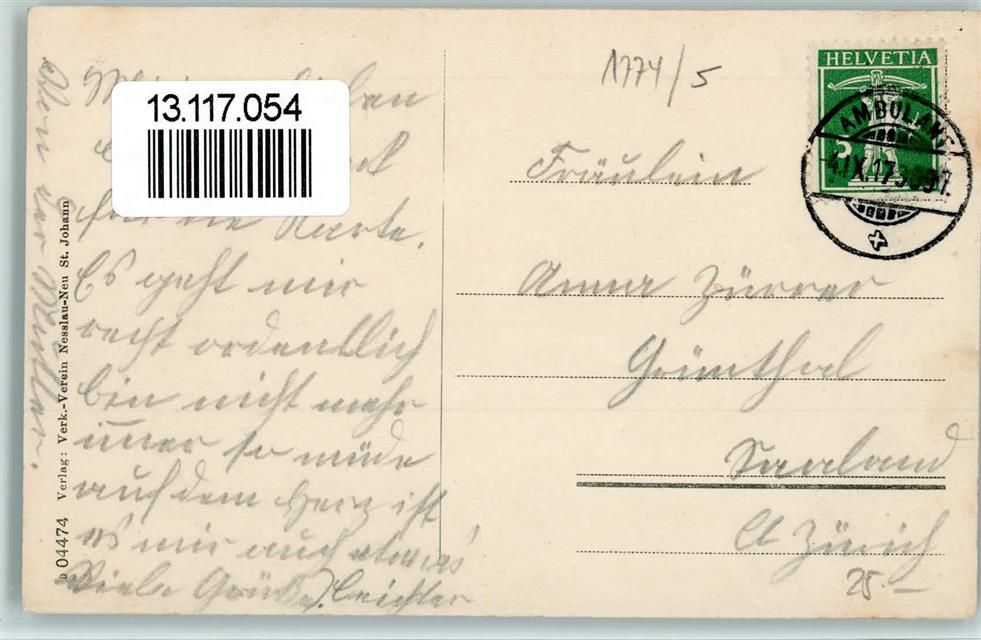 13.117.054
1774/5
HELVETIA
5
AMBULANT
4.IX.17
Fräulein
Anna Zürrer
Grünthal
Saaland
Ct Zürich
25.-
lieben
für die Karte.
Es geht mir
recht ordentlich
bin nicht mehr
immer so müde
auf dem Herz ist
es mir auch etwas
leichter
Viele Grüße
von der Mutter.
04474 Verlag: Verk.-Verein Nesslau-Neu St. Johann